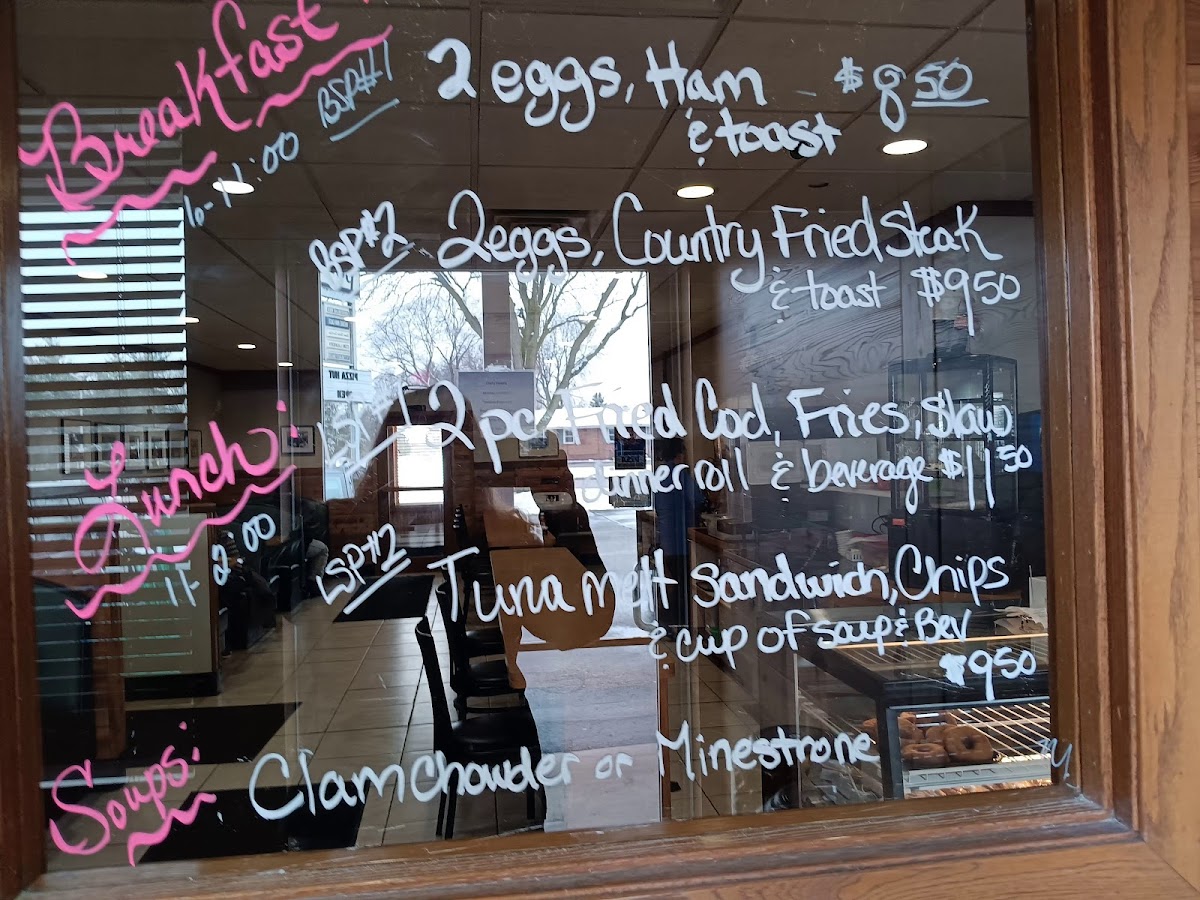 Breakfast:
BSP#1
2 eggs, Ham $8.50
& toast
BSP#2
2 eggs, Country Fried Steak
& toast $9.50
Lunch:
LSP#1
2 pc Fried Cod, Fries, slaw
dinner roll & beverage $11.50
LSP#2
Tuna melt sandwich, Chips
& cup of soup & Bev
$9.50
Soups:
Clam Chowder or Minestrone
PIZZA HUT